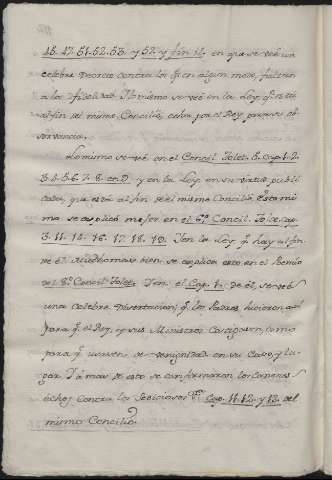 45. 47. 51. 52. 53. y 52. y fin it. en que se vee un
celebre Decreto contra los q.e en algun modo, falten
a la fidelidad. Lo mismo se vee en la Ley q.e está
al fin del mismo Concilio, dada por el Rey para su ob
servancia.
Lo mismo se vé en el Concil. Tolet. 8. cap. 1. 2.
3. 4. 5. 6. 7. 8. en 9. y en la Ley en su virtud publi
cada, que está al fin de el mismo Concilio. Esto mis
mo se explicó mejor en el 6.º Concil. Tole. cap.
3. 11. 14. 16. 17. 18. 19. I en la Ley q.e hay al fin
de el. Mucho mas bien se explica esto en el Proemio
del 8.º Concil. Tolet. I en el Cap. 1. de él, se vé
una celebre Disertacion, q.e los Padres hicieron aqi
para q.e el Rey, y sus Ministros Castiguen, como
para q.e usen de benignidad en su caso, y lu
gar. I á mas de esto se confirmaron los Canones
échos contra los Sediciosos cap. 11. 12. y 13. del
mismo Concilio.